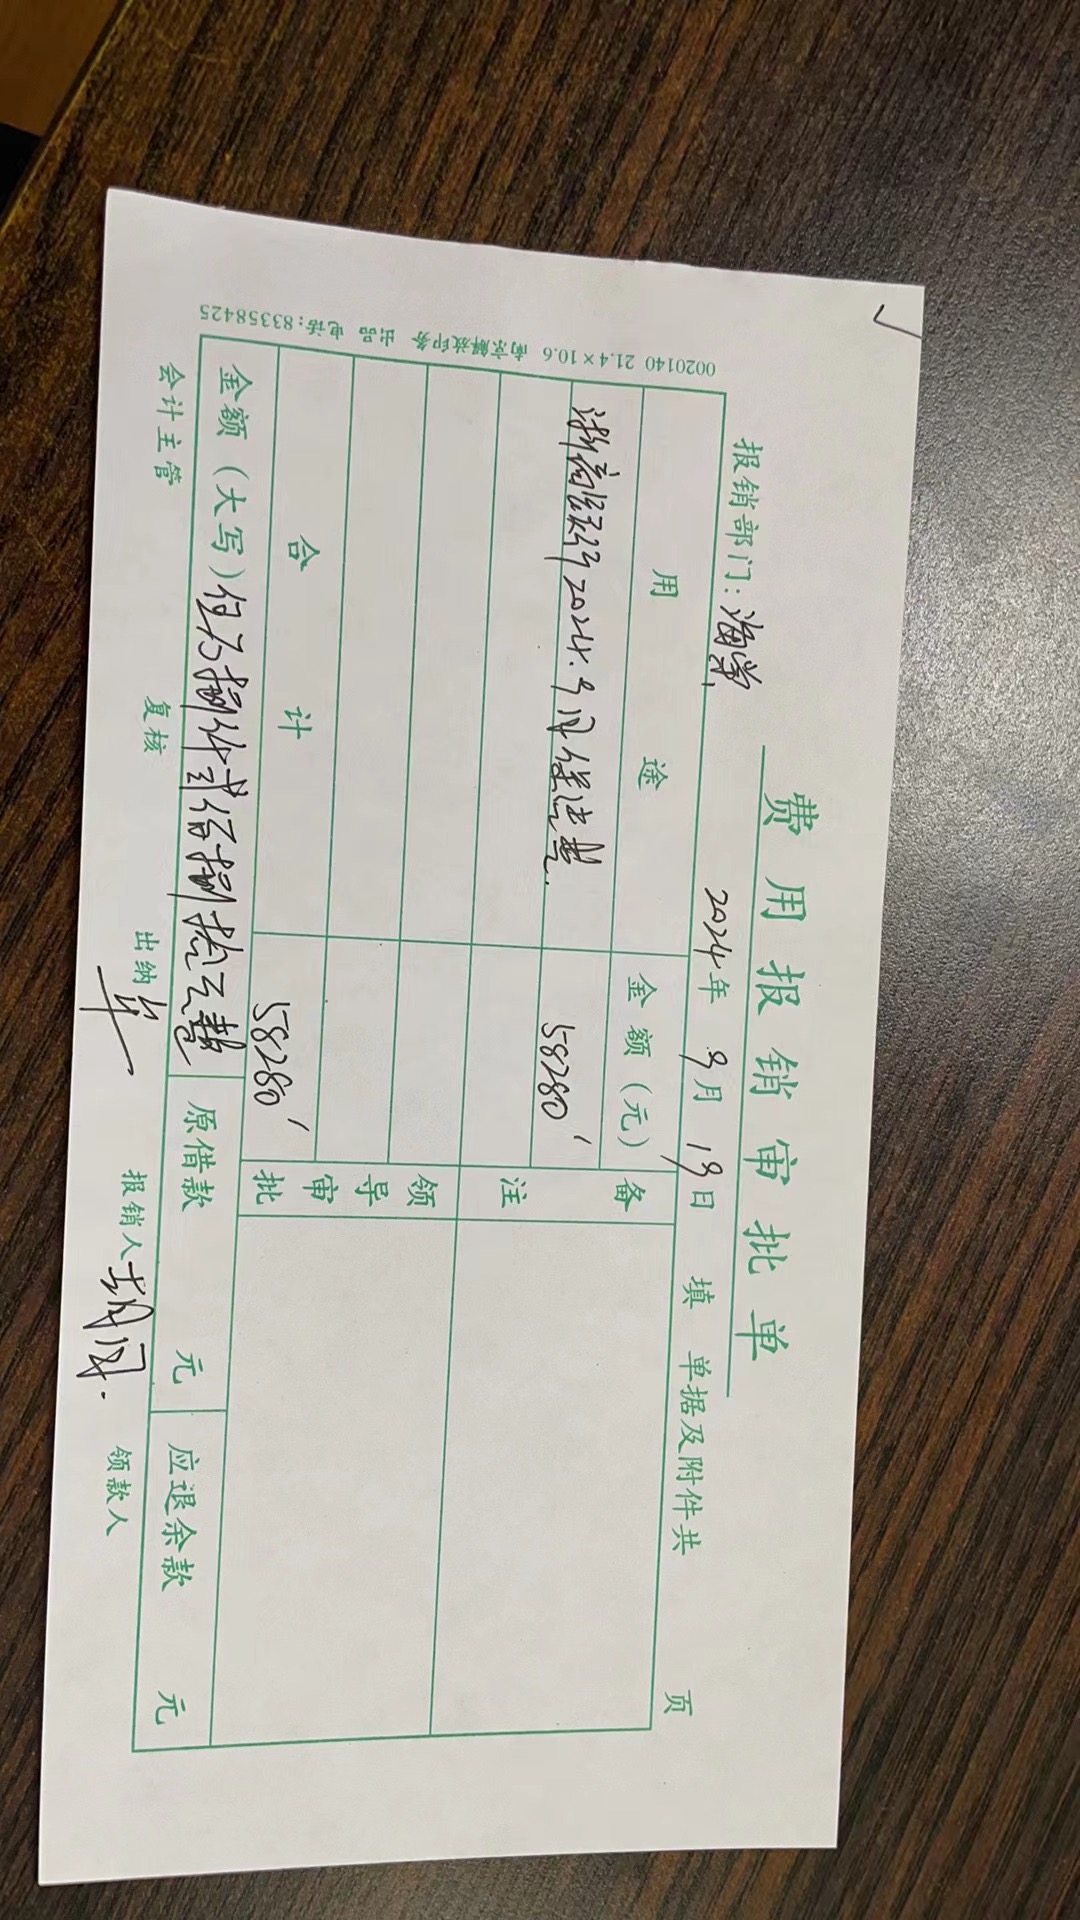 费用报销审批单
报销部门：海棠 2024年9月19日填 单据及附件共 页
用途 金额（元） 备注
浙商银行2024.9月保洁费 58280
合计 58280
领导审批
金额（大写）伍万捌仟贰佰捌拾元整 原借款 元 应退余款 元
会计主管 复核 出纳 报销人 领款人
0020140 21.4×10.6 南京解放印务 出品 电话：83358425